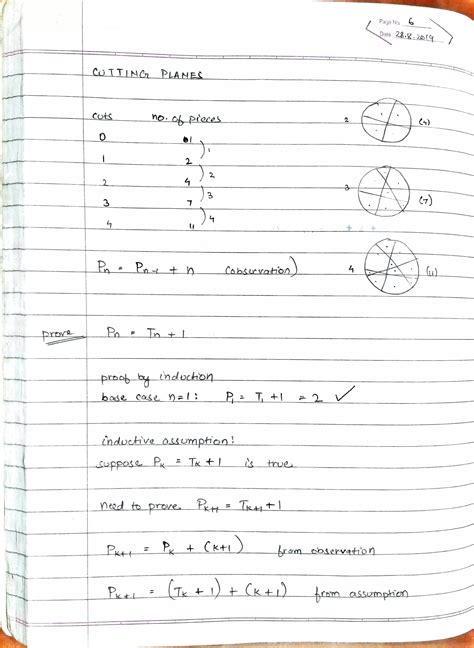 Page No. 6
Date 28.8.2019
CUTTING PLANES
cuts no. of pieces
0 1
1 2
2 4
3 7
4 11
1
2
3
4
2 (4)
3 (7)
4 (11)
Pn = Pn-1 + n (observation)
prove Pn = Tn + 1
proof by induction
base case n=1: P1 = T1 + 1 = 2 ✓
inductive assumption:
suppose Pk = Tk + 1 is true
need to prove Pk+1 = Tk+1 + 1
Pk+1 = Pk + (k+1) from observation
Pk+1 = (Tk + 1) + (k+1) from assumption